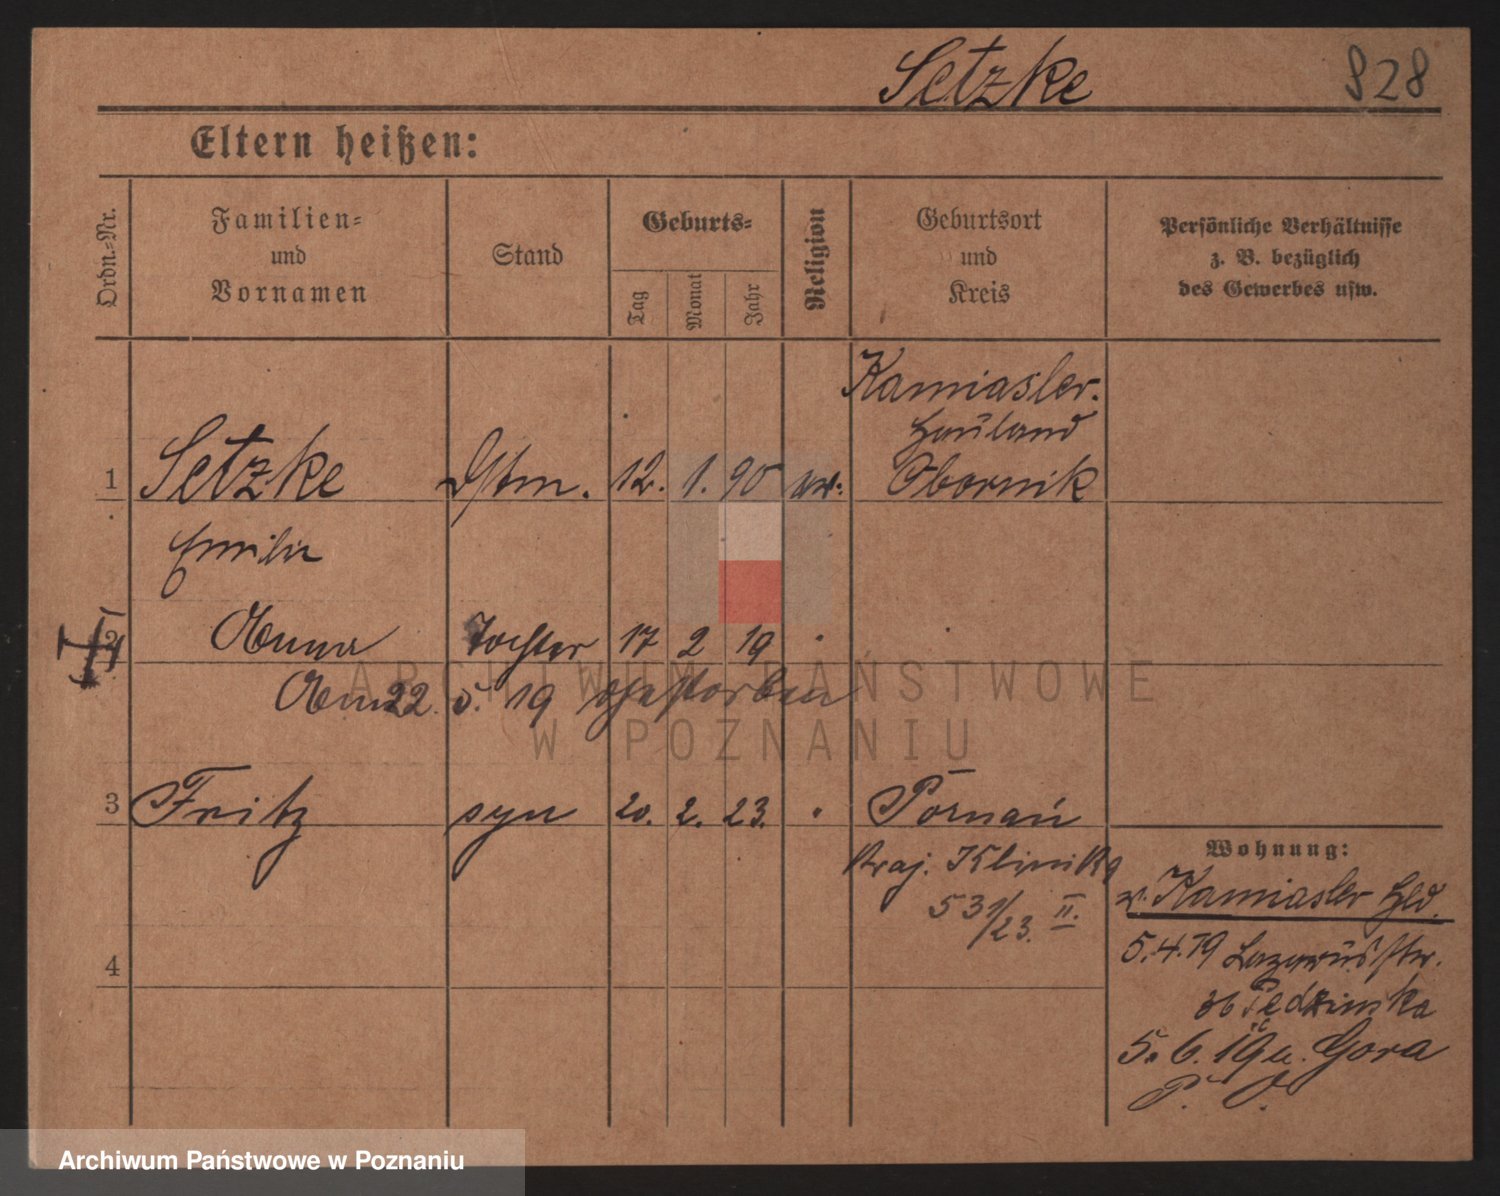 Setzke 828
Eltern heißen:
Ordn.-Nr.
Familien-
und
Vornamen
Stand
Geburts-
Tag
Monat
Jahr
Religion
Geburtsort
und
Kreis
Persönliche Verhältnisse
z. B. bezüglich
des Gewerbes usw.
Kamiasler.
Hauland
1 Setzke Dstm. 12. 1. 90 ev. Obornik
Emilie
2 Anna Tochter 17 2 19
22. 5. 19 gestorben
ARCHIWUM PAŃSTWOWE
W POZNANIU
3 Fritz syn 20. 2. 23. Poznań
Kraj. Klinika
531/23. II.
4
Wohnung:
v. Kamiasler Hld.
5.4.19 Lazarusstr.
5. 6. 19 n. Gora
Archiwum Państwowe w Poznaniu